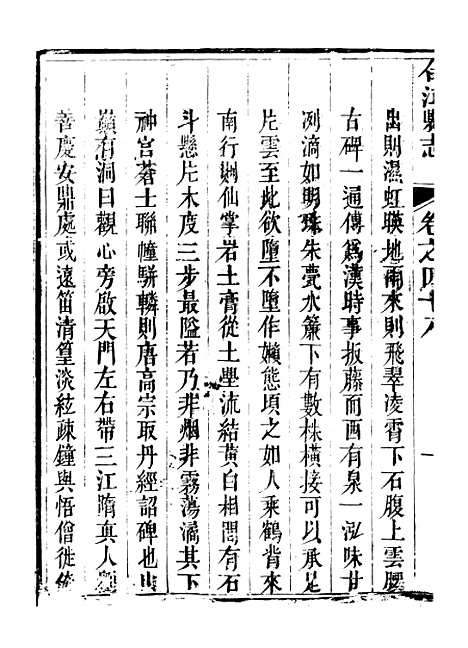 合江縣志
卷之四十八
一
出則濕虹暎地雨來則飛翠凌霄下石腹上雲腰
古碑一通傳爲漢時事扳藤而西有泉一泓味甘
冽滴如明珠朱甍水簾下有數株橫接可以承足
片雲至此欲墮不墮作嬾態頃之如人乘鶴背來
南行則仙掌岩土膏從土壘流結黃白相間有石
斗懸片木度三步最隘若乃非烟非霧蕩潏其下
神宮蒼土聯幢駢轔則唐高宗取丹經詔碑也山
巔有洞曰觀心旁啟天門左右帶三江隋真人
善慶安鼎處或遠笛清篁淡絃疎鐘與悟僧徙倚